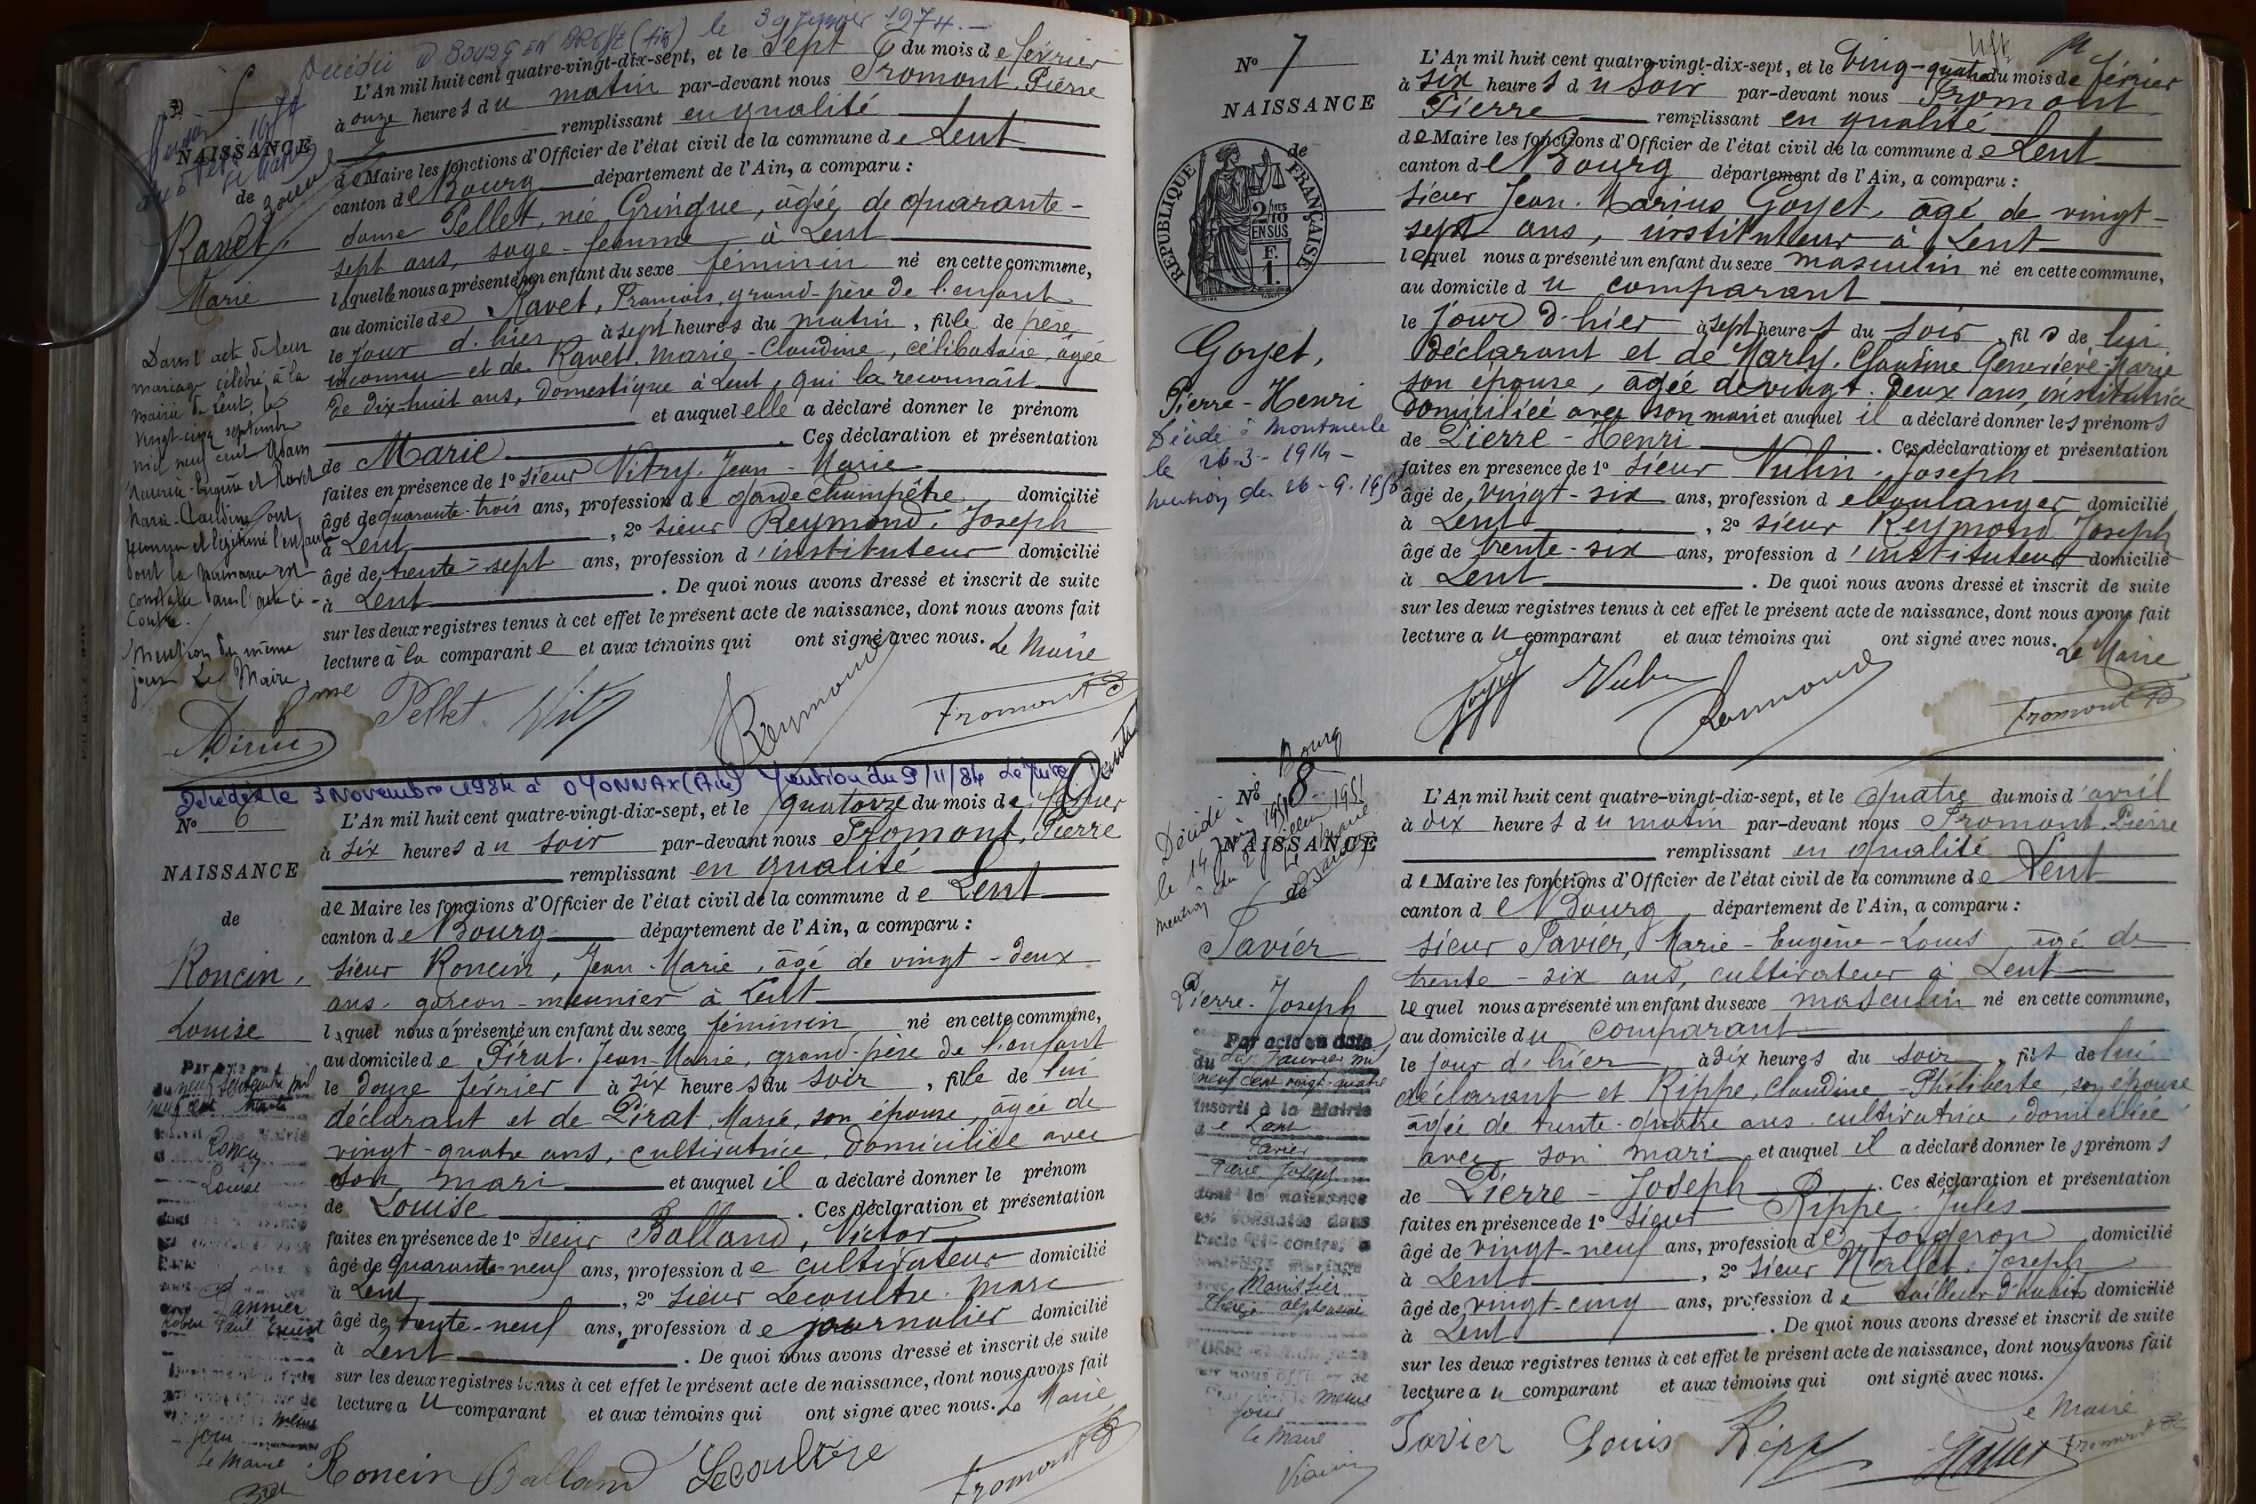 le 30 Janvier 1974.-
L'An mil huit cent quatre-vingt-dix-sept, et le Sept du mois de février
à onze heures du matin par-devant nous Fromont, Pierre
remplissant en qualité
de Maire les fonctions d'Officier de l'état civil de la commune de Lent
canton de Bourg département de l'Ain, a comparu :
dame Pellet, née Gringue, âgée de quarante-
sept ans, sage-femme, à Lent
laquelle nous a présenté un enfant du sexe féminin né en cette commune,
au domicile de Ravet, François, grand-père de l'enfant
le jour d'hier à sept heures du matin, fille de père
inconnu et de Ravet, Marie-Claudine, célibataire, âgée
de dix-huit ans, domestique à Lent, qui la reconnaît
et auquel elle a déclaré donner le prénom
de Marie. Ces déclaration et présentation
faites en présence de 1° sieur Vitry, Jean-Marie
âgé de quarante-trois ans, profession de garde champêtre domicilié
à Lent, 2° sieur Reymond, Joseph
âgé de trente-sept ans, profession d'instituteur domicilié
à Lent. De quoi nous avons dressé et inscrit de suite
sur les deux registres tenus à cet effet le présent acte de naissance, dont nous avons fait
lecture à la comparante et aux témoins qui ont signé avec nous. Le Maire
NAISSANCE
de
Ravet,
Marie
Dans l'acte de leur
mariage célébré à la
mairie de Lent, le
vingt-cinq septembre
mil neuf cent
et Ravet
Marie-Claudine ont
reconnu et légitimé l'enfant
dont la naissance est
constatée dans l'acte ci-
contre.
Mention du même
jour Le Maire,
Mme Pellet Reymond Fromont
Décédée le 3 Novembre 1984 à OYONNAX (Ain) Mention du 9/11/84 Le Maire
N° 6
NAISSANCE
de
Roncin,
Louise
L'An mil huit cent quatre-vingt-dix-sept, et le quatorze du mois de février
à six heures du soir par-devant nous Fromont, Pierre
remplissant en qualité
de Maire les fonctions d'Officier de l'état civil de la commune de Lent
canton de Bourg département de l'Ain, a comparu :
sieur Roncin, Jean-Marie, âgé de vingt-deux
ans, garçon-meunier à Lent
lequel nous a présenté un enfant du sexe féminin né en cette commune,
au domicile de Pirat, Jean-Marie, grand-père de l'enfant
le douze février à six heures du soir, fille de lui
déclarant et de Pirat, Marie, son épouse, âgée de
vingt-quatre ans, cultivatrice, domiciliée avec
son mari et auquel il a déclaré donner le prénom
de Louise. Ces déclaration et présentation
faites en présence de 1° sieur Balland, Victor
âgé de quarante-neuf ans, profession de cultivateur domicilié
à Lent, 2° sieur Lecoultre, Marc
âgé de trente-neuf ans, profession de journalier domicilié
à Lent. De quoi nous avons dressé et inscrit de suite
sur les deux registres tenus à cet effet le présent acte de naissance, dont nous avons fait
lecture au comparant et aux témoins qui ont signé avec nous. Le Maire
Roncin Balland Lecoultre Fromont
N° 7
NAISSANCE
de
REPUBLIQUE FRANÇAISE
2/10 EN SUS
F. 1.
Goyet,
Pierre-Henri
Décédé à Montmerle
L'An mil huit cent quatre-vingt-dix-sept, et le Vingt-quatre du mois de février
à six heures du soir par-devant nous Fromont
Pierre remplissant en qualité
de Maire les fonctions d'Officier de l'état civil de la commune de Lent
canton de Bourg département de l'Ain, a comparu :
sieur Jean-Marius Goyet, âgé de vingt-
sept ans, instituteur à Lent
lequel nous a présenté un enfant du sexe masculin né en cette commune,
au domicile du comparant
le jour d'hier à sept heures du soir, fils de lui
déclarant et de Marly, Claudine Geneviève-Marie
son épouse, âgée de vingt-deux ans, institutrice
domiciliée avec son mari et auquel il a déclaré donner les prénoms
de Pierre-Henri. Ces déclaration et présentation
faites en présence de 1° sieur Vulin, Joseph
âgé de vingt-six ans, profession de boulanger domicilié
à Lent, 2° sieur Reymond Joseph
âgé de trente-six ans, profession d'instituteur domicilié
à Lent. De quoi nous avons dressé et inscrit de suite
sur les deux registres tenus à cet effet le présent acte de naissance, dont nous avons fait
lecture au comparant et aux témoins qui ont signé avec nous. Le Maire
Fromont
N° 8
NAISSANCE
de
Tavier
Pierre-Joseph
Par acte en date
neuf cent vingt-quatre
inscrit à la Mairie
Tavier
L'An mil huit cent quatre-vingt-dix-sept, et le quatre du mois d'avril
à dix heures du matin par-devant nous Fromont, Pierre
remplissant en qualité
de Maire les fonctions d'Officier de l'état civil de la commune de Lent
canton de Bourg département de l'Ain, a comparu :
sieur Tavier, Marie-Eugène-Louis, âgé de
trente-six ans, cultivateur à Lent
lequel nous a présenté un enfant du sexe masculin né en cette commune,
au domicile du comparant
le jour d'hier à dix heures du soir, fils de lui
déclarant et Rippe, Claudine-Philiberte, son épouse
âgée de trente-quatre ans, cultivatrice, domiciliée
avec son mari et auquel il a déclaré donner les prénoms
de Pierre-Joseph. Ces déclaration et présentation
faites en présence de 1° sieur Rippe, Jules
âgé de vingt-neuf ans, profession de forgeron domicilié
à Lent, 2° sieur Joseph
âgé de vingt-cinq ans, profession de tailleur d'habits domicilié
à Lent. De quoi nous avons dressé et inscrit de suite
sur les deux registres tenus à cet effet le présent acte de naissance, dont nous avons fait
lecture au comparant et aux témoins qui ont signé avec nous.
Le Maire
Tavier Louis Fromont